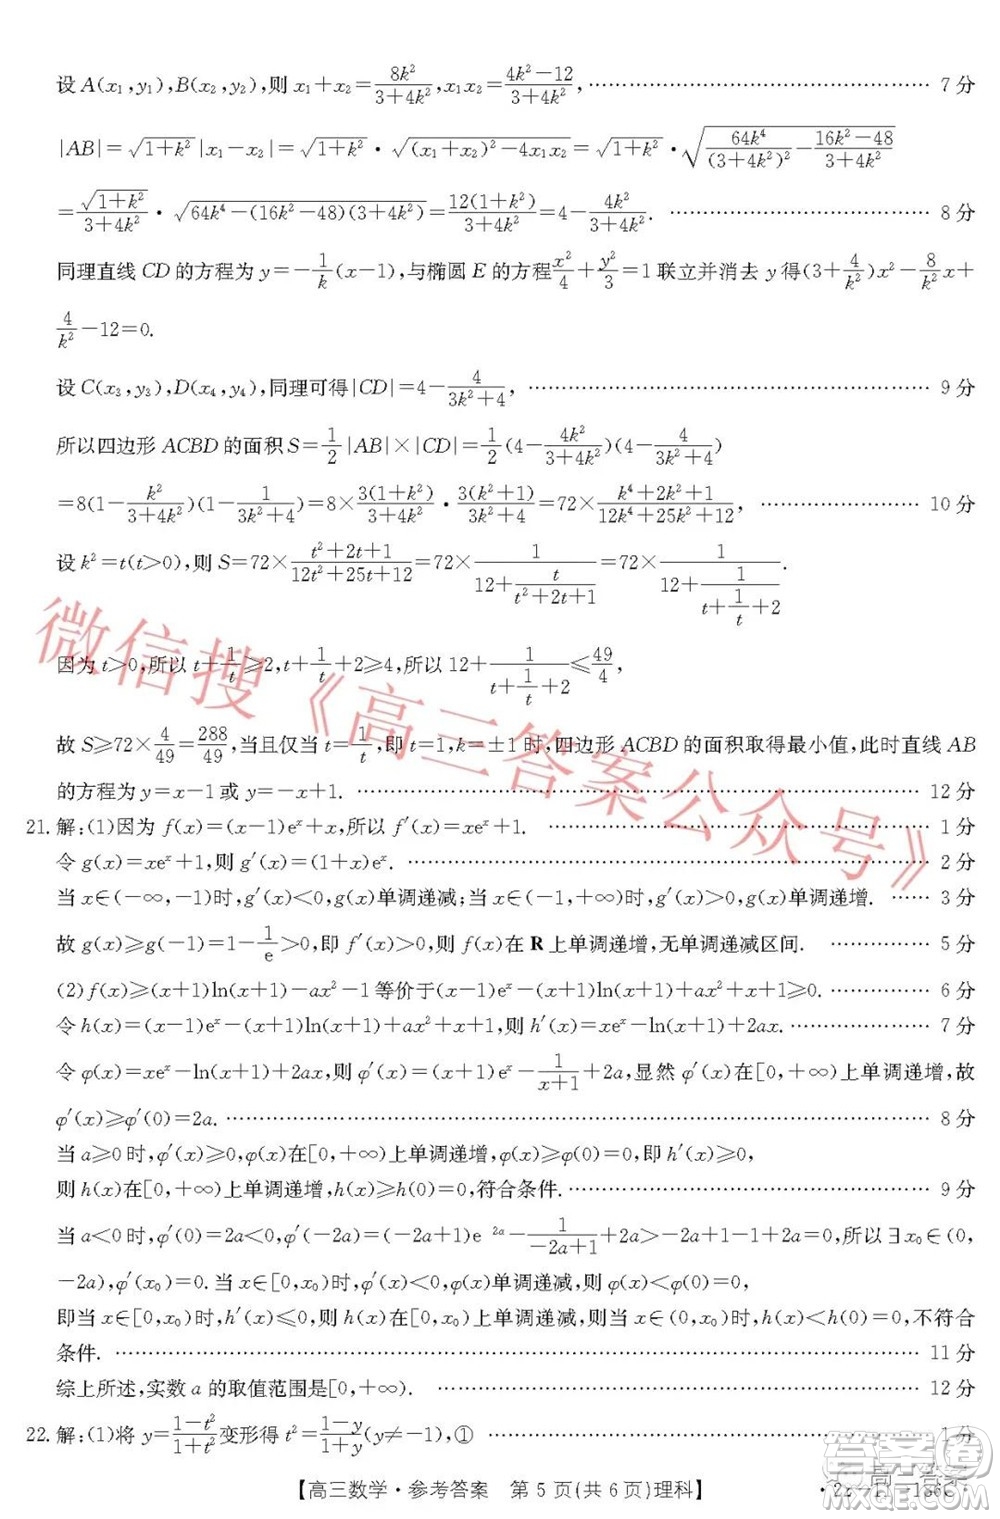 设 A(x₁,y₁),B(x₂,y₂),则 x₁+x₂=8k²/(3+4k²),x₁x₂=(4k²-12)/(3+4k²),………… 7 分
|AB|=√(1+k²)|x₁-x₂|=√(1+k²)·√((x₁+x₂)²-4x₁x₂)=√(1+k²)·√(64k⁴/(3+4k²)²-(16k²-48)/(3+4k²))
=√(1+k²)/(3+4k²)·√(64k⁴-(16k²-48)(3+4k²))=12(1+k²)/(3+4k²)=4-4k²/(3+4k²). ………… 8 分
同理直线 CD 的方程为 y=-1/k(x-1),与椭圆 E 的方程x²/4+y²/3=1 联立并消去 y 得(3+4/k²)x²-8/k²x+
4/k²-12=0.
设 C(x₃,y₃),D(x₄,y₄),同理可得|CD|=4-4/(3k²+4), ………… 9 分
所以四边形 ACBD 的面积 S=1/2|AB|×|CD|=1/2(4-4k²/(3+4k²))(4-4/(3k²+4))
=8(1-k²/(3+4k²))(1-1/(3k²+4))=8×3(1+k²)/(3+4k²)·3(k²+1)/(3k²+4)=72×(k⁴+2k²+1)/(12k⁴+25k²+12), ………… 10 分
设 k²=t(t>0),则 S=72×(t²+2t+1)/(12t²+25t+12)=72×1/(12+t/(t²+2t+1))=72×1/(12+1/(t+1/t+2)).
因为 t>0,所以 t+1/t≥2,t+1/t+2≥4,所以 12+1/(t+1/t+2)≤49/4,
故 S≥72×4/49=288/49,当且仅当 t=1/t,即 t=1,k=±1 时,四边形 ACBD 的面积取得最小值,此时直线 AB
的方程为 y=x-1 或 y=-x+1. ………… 12 分
21.解:(1)因为 f(x)=(x-1)eˣ+x,所以 f′(x)=xeˣ+1. ………… 1 分
令 g(x)=xeˣ+1,则 g′(x)=(1+x)eˣ. ………… 2 分
当 x∈(-∞,-1)时,g′(x)<0,g(x)单调递减;当 x∈(-1,+∞)时,g′(x)>0,g(x)单调递增. …… 3 分
故 g(x)≥g(-1)=1-1/e>0,即 f′(x)>0,则 f(x)在 R 上单调递增,无单调递减区间. ………… 5 分
(2)f(x)≥(x+1)ln(x+1)-ax²-1 等价于(x-1)eˣ-(x+1)ln(x+1)+ax²+x+1≥0. ………… 6 分
令 h(x)=(x-1)eˣ-(x+1)ln(x+1)+ax²+x+1,则 h′(x)=xeˣ-ln(x+1)+2ax. ………… 7 分
令 φ(x)=xeˣ-ln(x+1)+2ax,则 φ′(x)=(x+1)eˣ-1/(x+1)+2a,易知 φ′(x)在[0,+∞)上单调递增,故
φ′(x)≥φ′(0)=2a. ………… 8 分
当 a≥0 时,φ′(x)≥0,φ(x)在[0,+∞)上单调递增,φ(x)≥φ(0)=0,即 h′(x)≥0,
则 h(x)在[0,+∞)上单调递增,h(x)≥h(0)=0,符合条件. ………… 9 分
当 a<0 时,φ′(0)=2a<0,φ′(-2a)=(-2a+1)e⁻²ᵃ-1/(-2a+1)+2a>-2a+1-1+2a=0,所以 ∃x₀∈(0,
-2a),φ′(x₀)=0.当 x∈[0,x₀)时,φ′(x)<0,φ(x)单调递减,则 φ(x)≤φ(0)=0.
即当 x∈[0,x₀)时,h′(x)≤0,则 h(x)在[0,x₀)上单调递减,所以当 x∈(0,x₀)时,h(x)<h(0)=0,不符合
条件. ………… 11 分
综上所述,实数 a 的取值范围是[0,+∞). ………… 12 分
22.解:(1)将 y=(1-t²)/(1+t²)变形得 t²=(1-y)/(1+y)(y≠-1),① ………… 1 分
【高三数学·参考答案 第 5 页(共 6 页)理科】
微信搜《高三答案公众号》